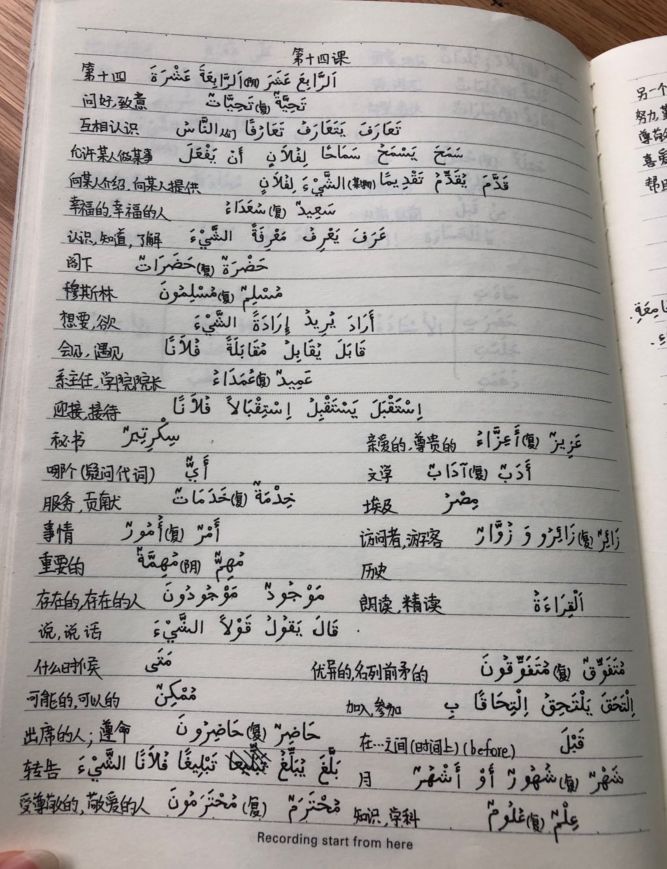 第十四课
第十四 اَلرَّابِعَ عَشَرَ (阴) اَلرَّابِعَةَ عَشْرَةَ
问好,致意 تَحِيَّةٌ (复) تَحِيَّاتٌ
互相认识 تَعَارَفَ يَتَعَارَفُ تَعَارُفًا النَّاسُ
允许某人做某事 سَمَحَ يَسْمَحُ سَمَاحًا لِفُلَانٍ أَنْ يَفْعَلَ
向某人介绍,向某人提供 قَدَّمَ يُقَدِّمُ تَقْدِيمًا الشَّيْءَ لِفُلَانٍ
幸福的,幸福的人 سَعِيدٌ (复) سُعَدَاءُ
认识,知道,了解 عَرَفَ يَعْرِفُ مَعْرِفَةً الشَّيْءَ
阁下 حَضْرَةٌ (复) حَضَرَاتٌ
穆斯林 مُسْلِمٌ (复) مُسْلِمُونَ
想要,欲 أَرَادَ يُرِيدُ إِرَادَةً الشَّيْءَ
会见,遇见 قَابَلَ يُقَابِلُ مُقَابَلَةً فُلَانًا
系主任,学院院长 عَمِيدٌ (复) عُمَدَاءُ
迎接,接待 اِسْتَقْبَلَ يَسْتَقْبِلُ اِسْتِقْبَالًا فُلَانًا
秘书 سِكْرِتِيرٌ 亲爱的,尊贵的 عَزِيزٌ (复) أَعِزَّاءُ
哪个(疑问代词) أَيٌّ 文学 أَدَبٌ (复) آدَابٌ
服务,贡献 خِدْمَةٌ (复) خَدَمَاتٌ 埃及 مِصْرُ
事情 أَمْرٌ (复) أُمُورٌ 访问者,游客 زَائِرٌ (复) زَائِرُو وَ زُوَّارٌ
重要的 مُهِمٌّ (阴) مُهِمَّةٌ 历史
存在的,存在的人 مَوْجُودٌ مَوْجُودُونَ 朗读,精读 اَلْقِرَاءَةُ
说,说话 قَالَ يَقُولُ قَوْلًا الشَّيْءَ
什么时候 مَتَى 优异的,名列前矛的 مُتَفَوِّقٌ (复) مُتَفَوِّقُونَ
可能的,可以的 مُمْكِنٌ 加入,参加 اِلْتَحَقَ يَلْتَحِقُ اِلْتِحَاقًا بِ
出席的人;遵命 حَاضِرٌ (复) حَاضِرُونَ 在…之间(时间上)(before) قَبْلَ
转告 بَلَّغَ يُبَلِّغُ تَبْلِيغًا فُلَانًا الشَّيْءَ 月 شَهْرٌ (复) شُهُورٌ أَوْ أَشْهُرٌ
受尊敬的,敬爱的人 مُحْتَرَمٌ (复) مُحْتَرَمُونَ 知识,学科 عِلْمٌ (复) عُلُومٌ
Recording start from here
另一个
努力,
尊敬
喜爱
帮助